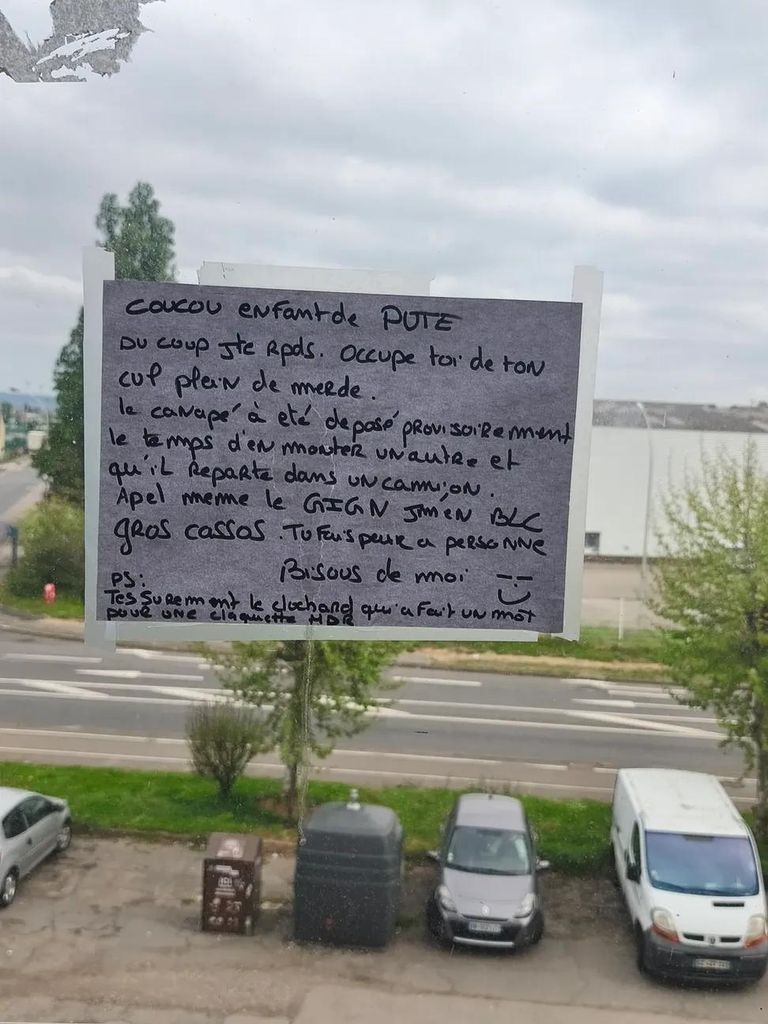 COUCOU enfant de PUTE
DU COUP Jte Rpds. Occupe toi de ton
cul plein de merde.
le canapé à été deposé provisoirement
le temps d'en monter un autre et
qu'il reparte dans un camion.
Apel meme le GIGN Jm'en BLC
gros cassos. Tu fais peur a personne
Bisous de moi
PS:
Tes surement le clochard qui a fait un mot
pour une claquette MDR